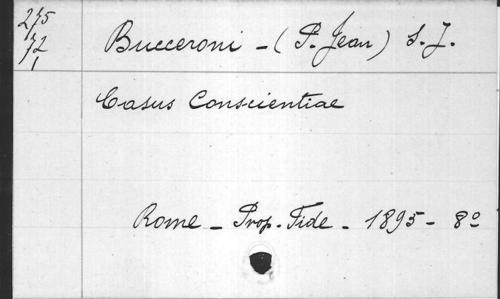 275
72
1
Bucceroni - (P. Jean) S. J.
Casus Conscientiae
Rome - Prop. Fide - 1895 - 8º